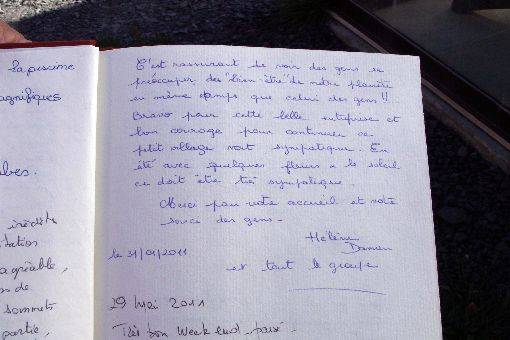 la piscine
agnifiques
bes.
inédite
tation
agréable,
s de
sommets
partie,
C'est rassurant de voir des gens se
préoccuper des "bien être" de notre planète
en même temps que celui des gens !!
Bravo pour cette belle entreprise et
bon courage pour continuer ce
petit village vert sympatique. En
été avec quelques fleurs & le soleil
ce doit être très sympatique.
Merci pour votre accueil et votre
souci des gens -
Hélène
Damien
le 31/01/2011
et tout le groupe
29 Mai 2011
Très bon Week end passé -